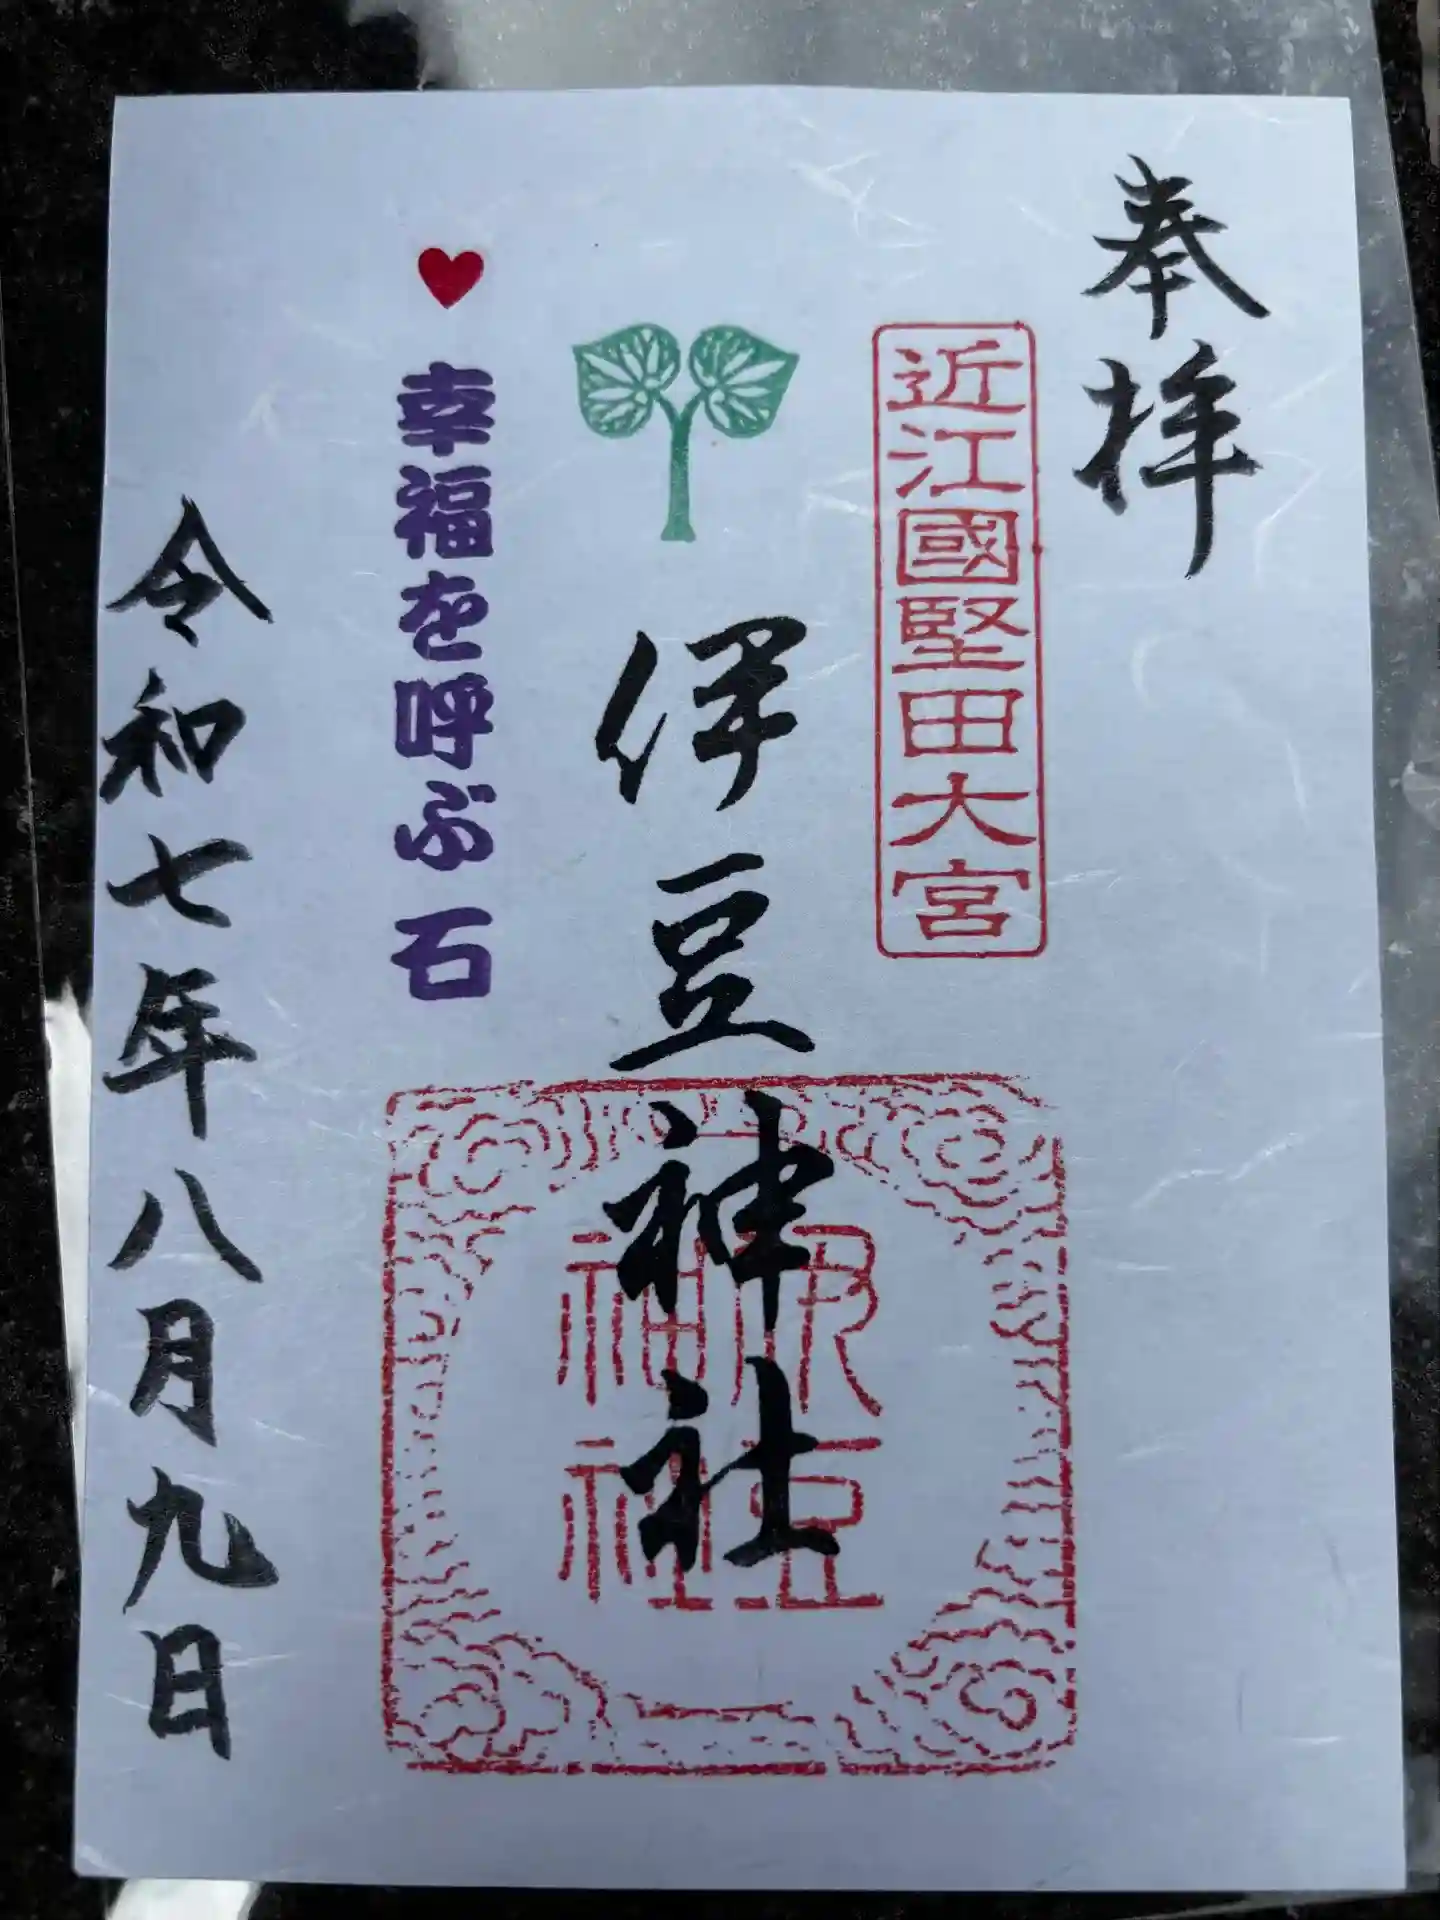 奉拝
近江國堅田大宮
伊豆神社
幸福を呼ぶ石
令和七年八月九日